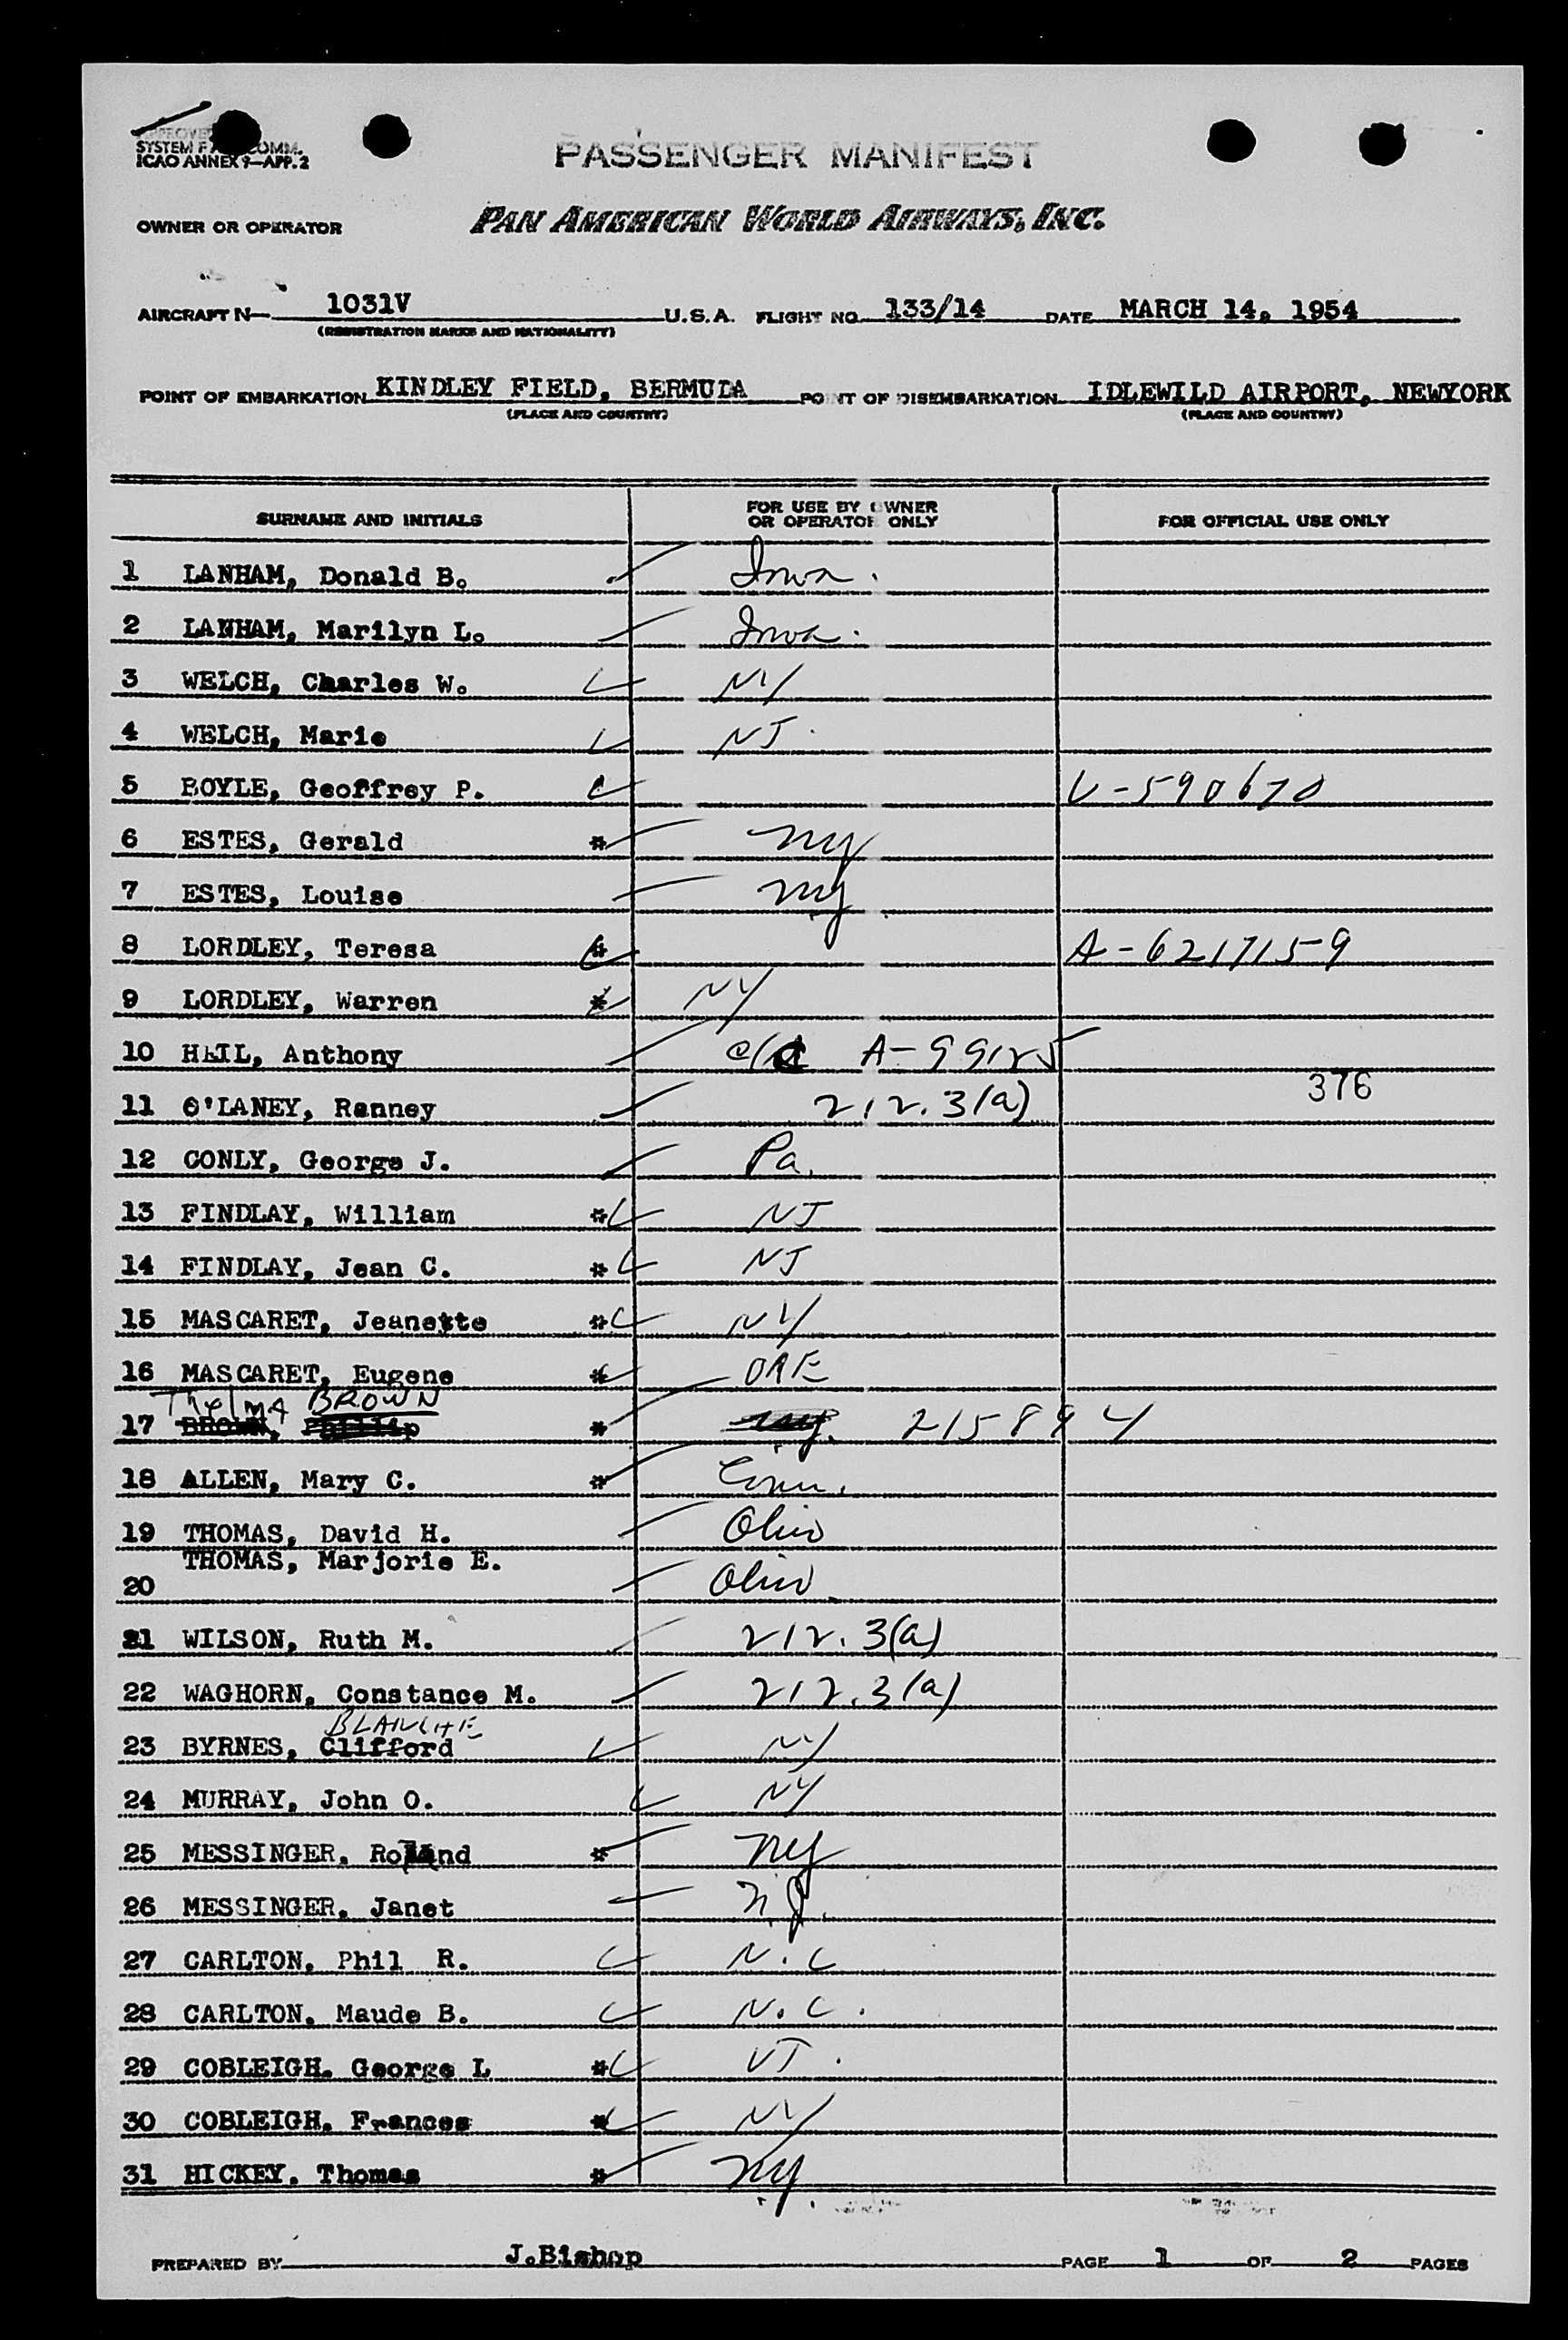 APPROVED
SYSTEM F A COMM.
ICAO ANNEX 9—APP. 2
PASSENGER MANIFEST
OWNER OR OPERATOR PAN AMERICAN WORLD AIRWAYS, INC.
AIRCRAFT N— 1031V U.S.A. FLIGHT NO. 133/14 DATE MARCH 14, 1954
(REGISTRATION MARKS AND NATIONALITY)
POINT OF EMBARKATION KINDLEY FIELD, BERMUDA POINT OF DISEMBARKATION IDLEWILD AIRPORT, NEWYORK
(PLACE AND COUNTRY) (PLACE AND COUNTRY)
SURNAME AND INITIALS FOR USE BY OWNER OR OPERATOR ONLY FOR OFFICIAL USE ONLY
1 LANHAM, Donald B. Iowa.
2 LANHAM, Marilyn L. Iowa.
3 WELCH, Charles W. NY
4 WELCH, Marie NJ.
5 BOYLE, Geoffrey P. V-590670
6 ESTES, Gerald * ny
7 ESTES, Louise ny
8 LORDLEY, Teresa * A-6217159
9 LORDLEY, Warren * NY
10 HAIL, Anthony A-99125
11 O'LANEY, Ranney 212.3(a) 376
12 CONLY, George J. Pa.
13 FINDLAY, William * NJ
14 FINDLAY, Jean C. * NJ
15 MASCARET, Jeanette * NY
16 MASCARET, Eugene * ORE
Thelma BROWN
17 BROWN, Phillip * ny. 215894
18 ALLEN, Mary C. * Conn.
19 THOMAS, David H. Ohio
THOMAS, Marjorie E.
20 Ohio
21 WILSON, Ruth M. 212.3(a)
22 WAGHORN, Constance M. 212.3(a)
BLANCHE
23 BYRNES, Clifford NY
24 MURRAY, John O. NY
25 MESSINGER, Roland * ny
26 MESSINGER, Janet n.J.
27 CARLTON, Phil R. N.C
28 CARLTON, Maude B. N.C.
29 COBLEIGH, George L * VT.
30 COBLEIGH, Frances * NY
31 HICKEY, Thomas * ny
PREPARED BY J.Bishop PAGE 1 OF 2 PAGES